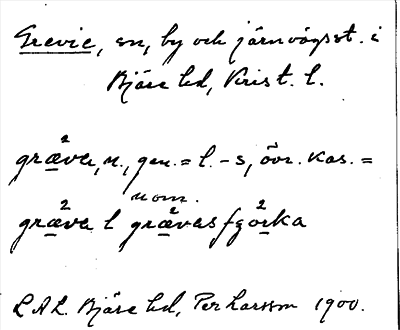 Grevie, sn, by och järnvägsst. i
Bjäre hd, Krist. l.
græ²va, n., gen. = l. -s, övr. kas. =
nom.
græ²va l græ²vasfgo²rka
LAL. Bjäre hd, Per Larsson 1900.